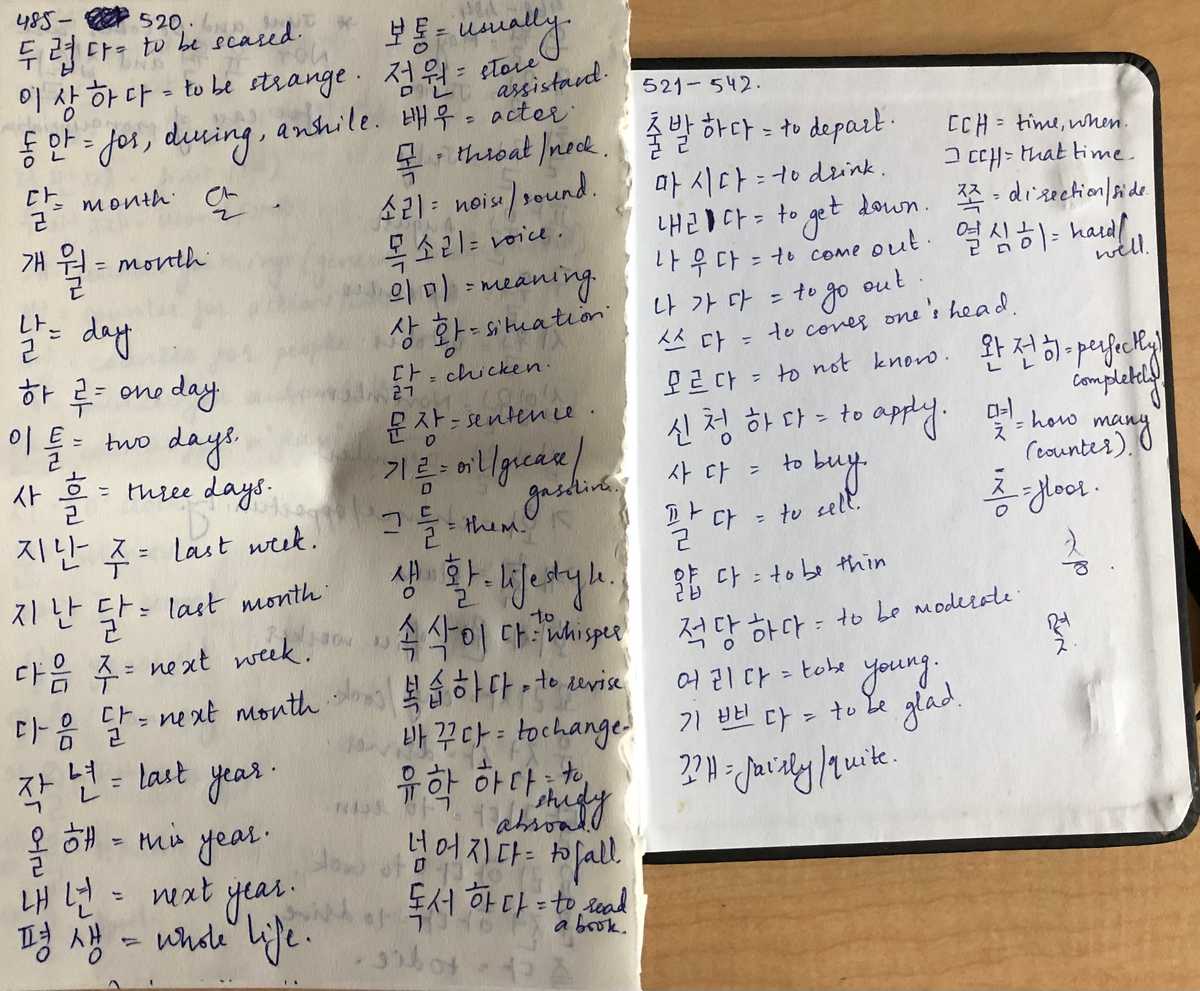 485- 520.
두렵다= to be scared.
이상하다 = to be strange.
동안 = for, during, awhile.
달= month 달 .
개월= month
날= day
하루= one day.
이틀= two days.
사흘= three days.
지난 주= last week.
지난 달= last month
다음 주= next week.
다음 달= next month
작년= last year.
올해= this year.
내년= next year.
평생= whole life.
보통= usually
점원= store
assistant.
배우= actor.
목= throat/neck.
소리= noise/sound.
목소리= voice.
의미= meaning
상황= situation
닭= chicken.
문장= sentence.
기름= oil/grease/
gasoline.
그들= them.
생활= lifestyle.
속삭이다= to
whisper
복습하다= to revise
바꾸다= to change
유학하다= to
study
abroad.
넘어지다= to fall.
독서하다= to read
a book.
521-542.
출발하다= to depart.
마시다= to drink.
내리다= to get down.
나우다= to come out.
나가다= to go out.
쓰다= to cover one's head.
모르다= to not know.
신청하다= to apply.
사다= to buy
팔다= to sell.
얇다= to be thin
적당하다= to be moderate.
어리다= to be young.
기쁘다= to be glad.
꼬개= fairly/quite.
때= time, when.
그때= that time.
쪽= direction/side
열심히= hard/
well.
완전히= perfectly/
completely
몇= how many
(counter).
층= floor.
층.
몇.